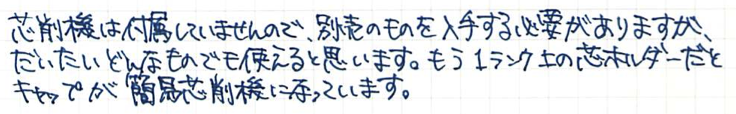 芯削機は付属していませんので、別売のものを入手する必要がありますが、
だいたいどんなものでも使えると思います。もう1ランク上の芯ホルダーだと
キャップが簡易芯削機になっています。